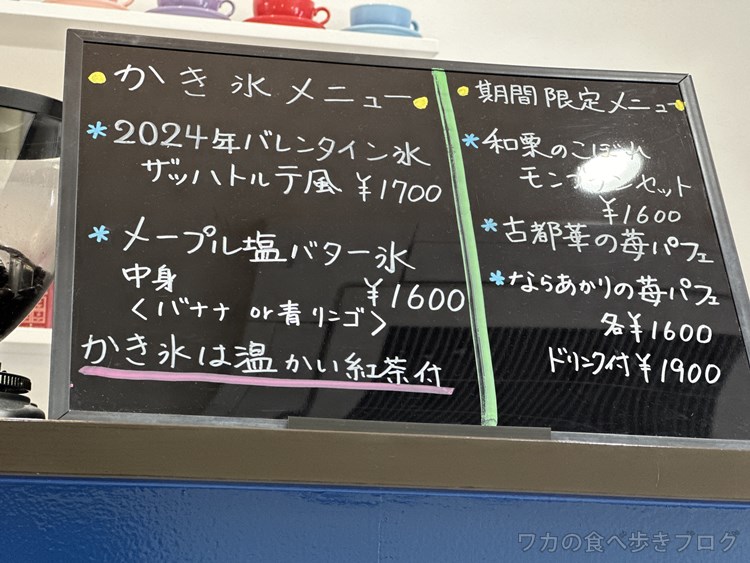 かき氷メニュー
*2024年バレンタイン氷
ザッハトルテ風 ¥1700
*メープル塩バター氷
中身 ¥1600
<バナナ or 青リンゴ>
かき氷は温かい紅茶付
期間限定メニュー
*和栗のこぼれ
モンブランセット
¥1600
*古都華の苺パフェ
*ならあかりの苺パフェ
各¥1600
ドリンク付¥1900
ワカの食べ歩きブログ